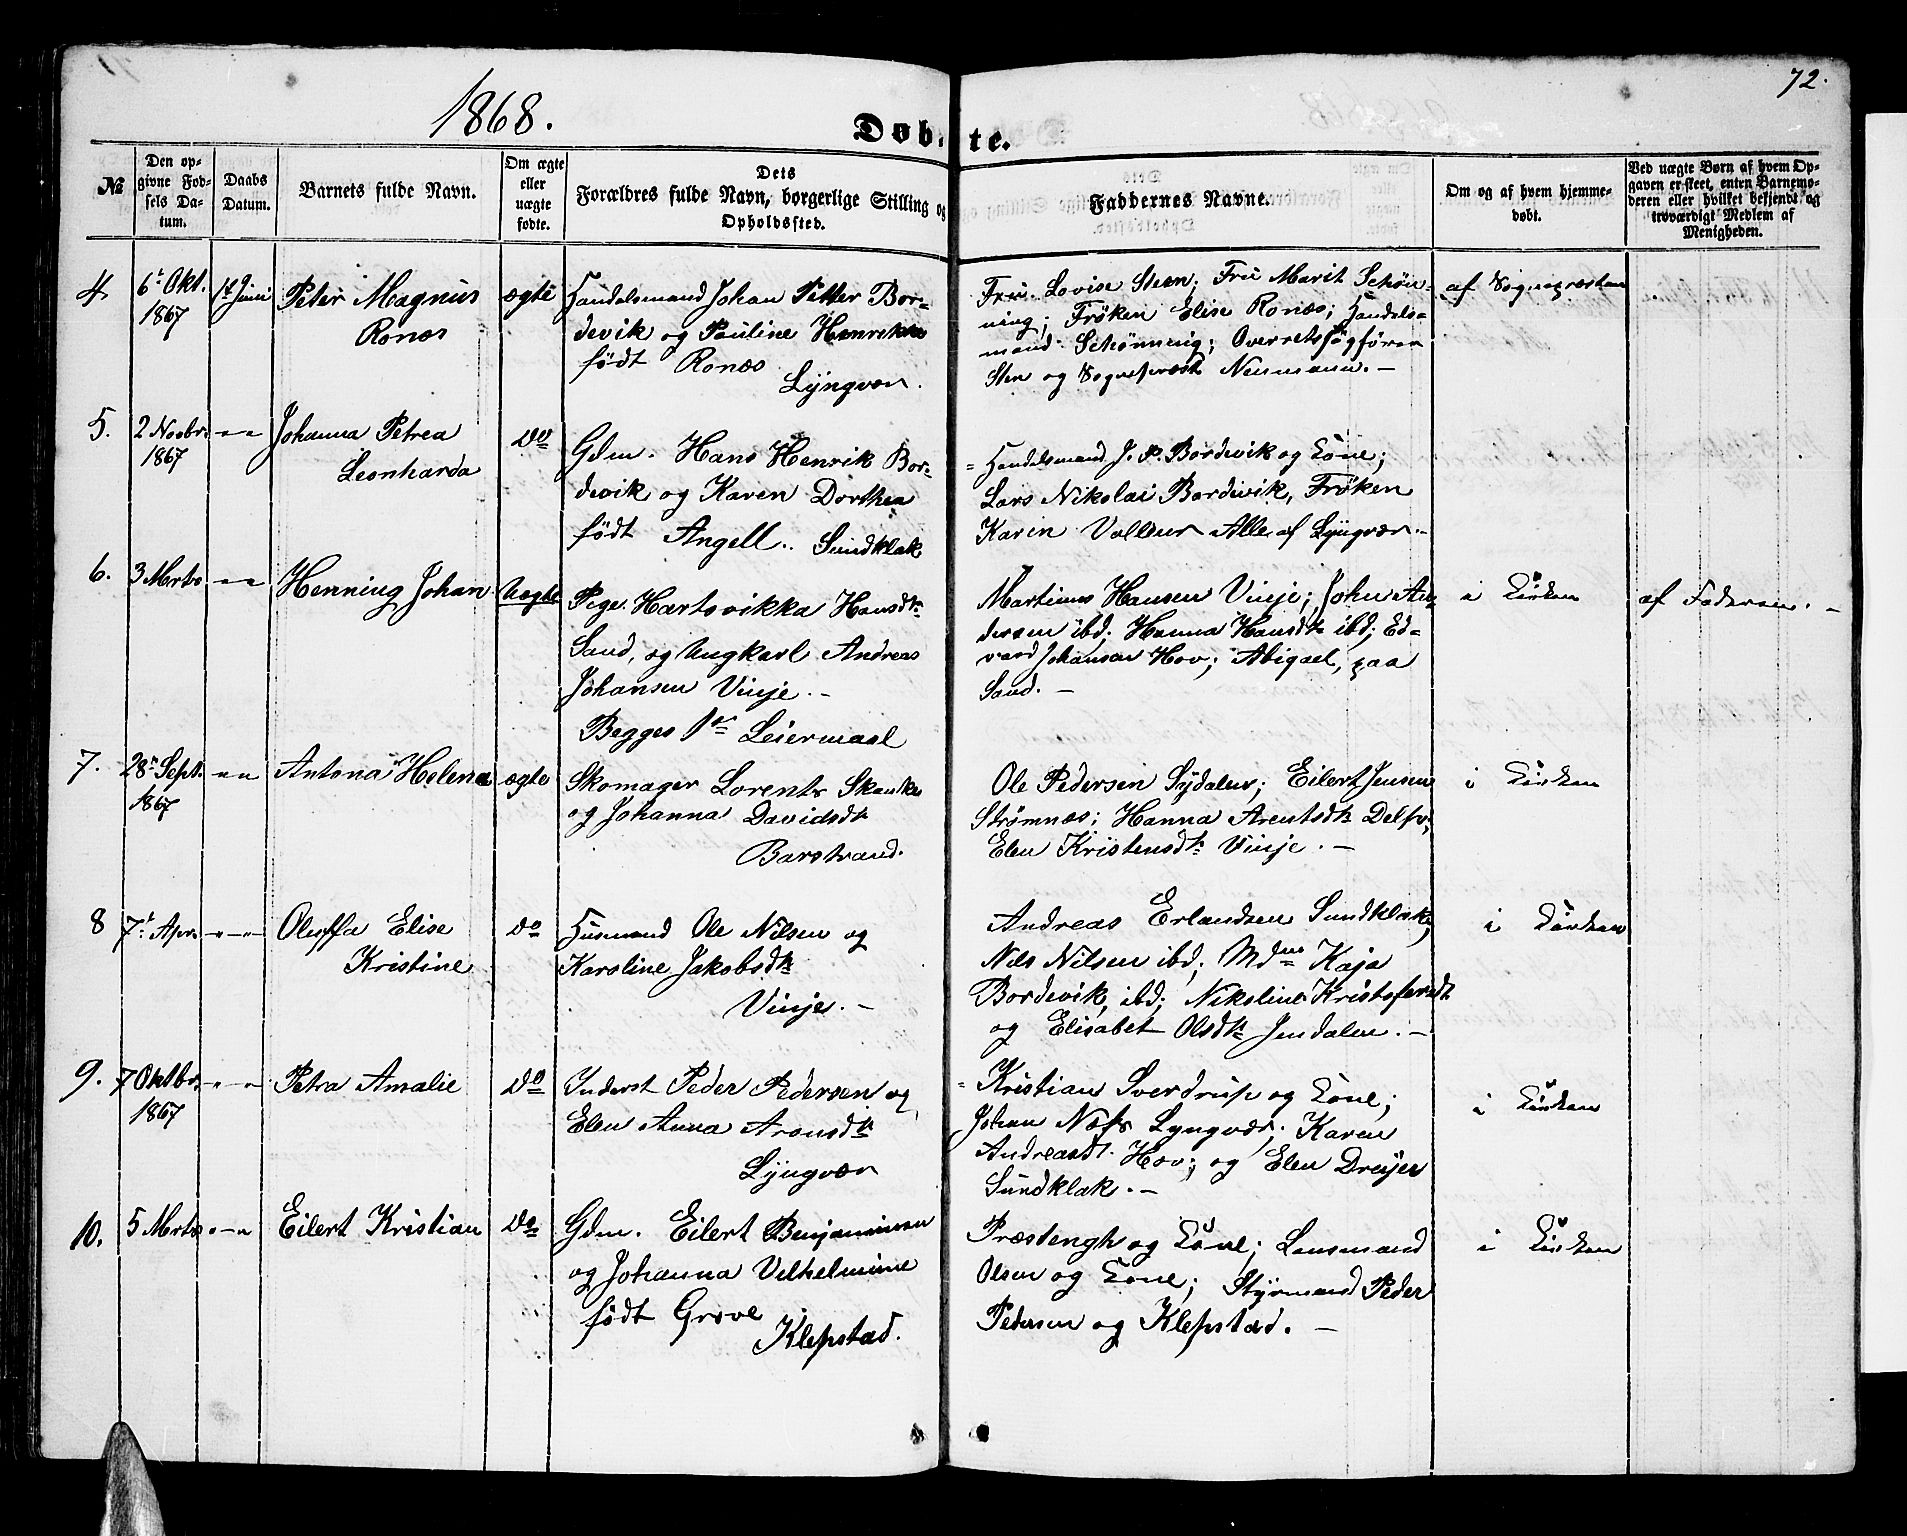 72.
1868.
Døbte.
No
Den opgivne Fødsels Datum.
Daabs Datum.
Barnets fulde Navn.
Om ægte eller uægte fødte.
Dets Forældres fulde Navn, borgerlige Stilling og Opholdssted.
Faddernes Navne.
Om og af hvem hjemmedøbt.
Ved uægte Børn af hvem Opgaven er skeet, enten Barnemoderen eller hvilket bekjendt og troværdigt Medlem af Menigheden.
4 6t Okt. 1867 14 Juni
Peter Magnus
Ronæs
ægte
Handelsmand Johan Petter Bor-
devik og Pauline Henrikke
født Ronæs
Lyngvær.
Fru Lovise Steen; Fru Marit Schøn-
ning; Frøken Elise Ronæs; Handels-
mand Schønning; Overretssagfører
Sten og Sognepræst Neumann. -
af Sognepræsten
5. 2 Novbr. 1867 - " - "
Johanna Petrea
Leonharda
Do
Gdm. Hans Henrik Bor-
devik og Karen Dorthea
født Angell. Sundklak
Handelsmand J. P. Bordevik og Kone;
Lars Nikolai Bordevik, Frøken
Karen Volleur Alle af Lyngvær. -
6. 3 Marts - " - "
Henning Johan
Uægte
Pige Hartsvikka Hansdtr
Sand, og Ungkarl Andreas
Johansen Vinje. -
Begges 1ste Leiermaal
Martinus Hansen Vinje; John An-
dersen ibd; Hanna Hansdtr ibd; Ed-
vard Johansen Hov; Abigael, paa
Sand. -
i Kirken
af Faderen. -
7. 28de Sept. 1867 - " - "
Antona Helena
ægte
Skomager Lorents Skanke
og Johanna Davidsdtr
Barstrand.
Ole Pedersen Sydalen; Eilert Jensen
Strømnæs; Hanna Arentsdtr Delp;
Elen Kristensdtr Vinje. -
i Kirken
8 7t Apr. - " - "
Oluffa Elise
Kristine
Do
Husmand Ole Nilsen og
Karoline Jakobsdtr
Vinje. -
Andreas Erlandsen Sundklak;
Nils Nilsen ibd; Mdme Kaja
Bordevik, ibd; Nikoline Kristofersdtr
og Elisabet Olsdtr Jendalen. -
i Kirken
9. 7 Oktbr. 1867 - " - "
Petra Amalie
Do
Inderst Peder Pedersen og
Elen Anna Aronsdtr
Lyngvær
Kristian Sverdrup og Kone;
Johan Næss Lyngvær; Karen
Andreasdt. Hov; og Elen Dreyer
Sundklak. -
i Kirken
10. 5 Marts - " - "
Eilert Kristian
Do
Gdm. Eilert Benjaminsen
og Johanna Vilhelmine
født Grove
Klepstad.
Præstengh og Kone; Lensmand
Olsen og Kone; Styrmand Peder
Petersen og Klepstad. -
i Kirken